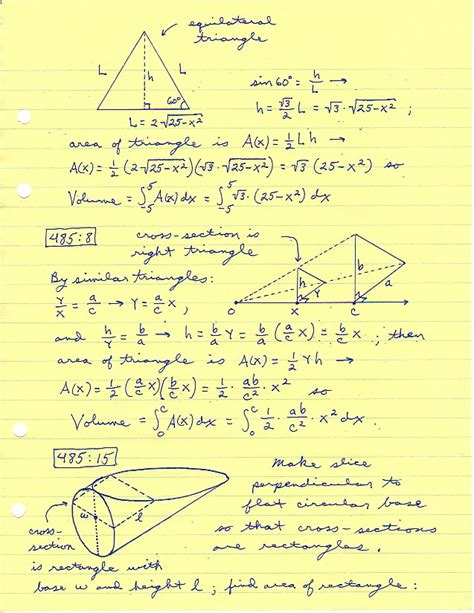 equilateral
triangle
L L
h
60°
L = 2√25-x²
sin 60° = h/L →
h = √3/2 L = √3 · √25-x² ;
area of triangle is A(x) = 1/2 L h →
A(x) = 1/2 (2√25-x²)(√3 · √25-x²) = √3 (25-x²) so
Volume = ∫_{-5}^{5} A(x) dx = ∫_{-5}^{5} √3 · (25-x²) dx
485:8 cross-section is
right triangle
By similar triangles:
Y/x = a/c → Y = a/c x ,
h Y b a
O x c
and h/Y = b/a → h = b/a Y = b/a (a/c x) = b/c x ; then
area of triangle is A(x) = 1/2 Y h →
A(x) = 1/2 (a/c x)(b/c x) = 1/2 · ab/c² · x² so
Volume = ∫_0^c A(x) dx = ∫_0^c 1/2 · ab/c² · x² dx .
485:15
w l
Make slice
perpendicular to
flat circular base
so that cross-sections
are rectangles.
cross-
section
is rectangle with
base w and height l ; find area of rectangle :